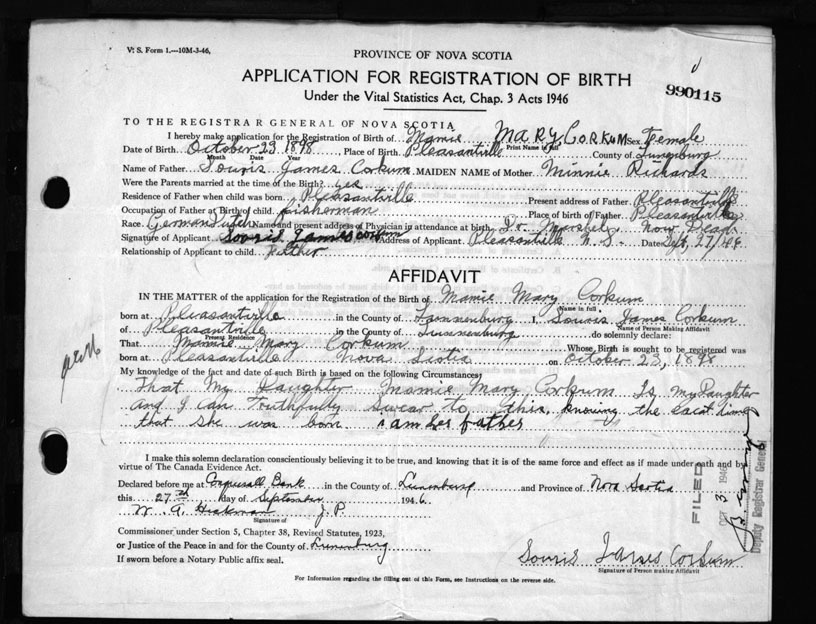 V. S. Form 1.---10M-3-46.
PROVINCE OF NOVA SCOTIA
APPLICATION FOR REGISTRATION OF BIRTH
990115
Under the Vital Statistics Act, Chap. 3 Acts 1946
TO THE REGISTRAR GENERAL OF NOVA SCOTIA
I hereby make application for the Registration of Birth of Mamie MARY CORKUM Sex Female
Print Name in full
Date of Birth October 23 1898 Place of Birth Pleasantville County of Lunenburg
Month Date Year
Name of Father Souris James Corkum MAIDEN NAME of Mother Minnie Richards
Were the Parents married at the time of the Birth? yes
Residence of Father when child was born Pleasantville Present address of Father Pleasantville
Occupation of Father at Birth of child fisherman Place of birth of Father Pleasantville
Race German Dutch Name and present address of Physician in attendance at birth Dr. Marshel Now Dead
Signature of Applicant Souris James Corkum Address of Applicant Pleasantville N. S. Date Sept, 27/46
Relationship of Applicant to child Father
AFFIDAVIT
IN THE MATTER of the application for the Registration of the Birth of Mamie Mary Corkum
Name in full
born at Pleasantville in the County of Lunnenburg I, Souris James Corkum
Name of Person Making Affidavit
of Pleasantville in the County of Lunnenburg do solemnly declare:
Present Residence
That Mamie Mary Corkum Whose Birth is sought to be registered was
born at Pleasantville Nova Scotia on October 23, 1898
My knowledge of the fact and date of such Birth is based on the following Circumstances:
That My Daughter Mamie Mary Corkum Is my Daughter
and I can Truthfully swear to this, knowing the exact time
that she was born I am her father
I make this solemn declaration conscientiously believing it to be true, and knowing that it is of the same force and effect as if made under oath and by
virtue of The Canada Evidence Act.
Declared before me at Conquerall Bank in the County of Lunenburg and Province of Nova Scotia
this 27th day of September 1946
W. A. Heckman J. P.
Signature of
Commissioner under Section 5, Chapter 38, Revised Statutes, 1923,
or Justice of the Peace in and for the County of Lunenburg
If sworn before a Notary Public affix seal.
Souris James Corkum
Signature of Person making Affidavit
For Information regarding the filling out of this Form, see Instructions on the reverse side.
FILED
OCT 3 1946
Deputy Registrar General